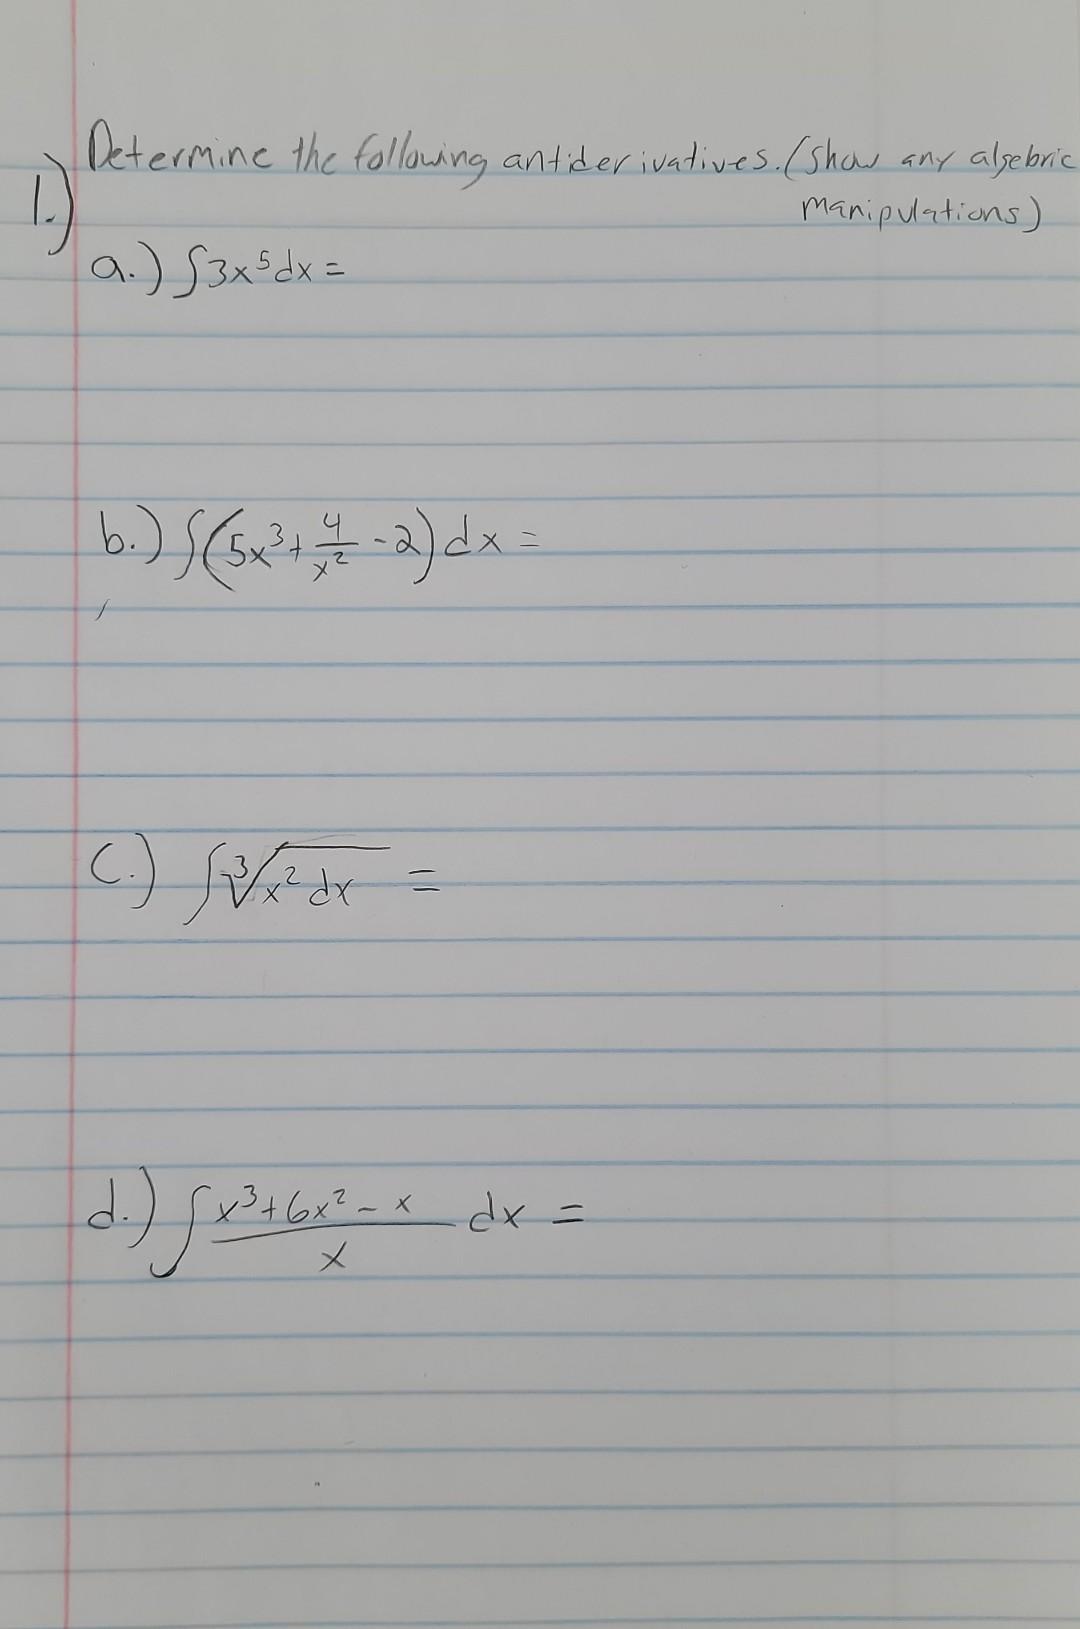 1.) Determine the following antiderivatives. (Show any algebric
manipulations)
a.) ∫3x⁵dx =
b.) ∫(5x³ + 4/x² - 2)dx =
C.) ∫∛(x² dx) =
d.) ∫ (x³ + 6x² - x)/x dx =